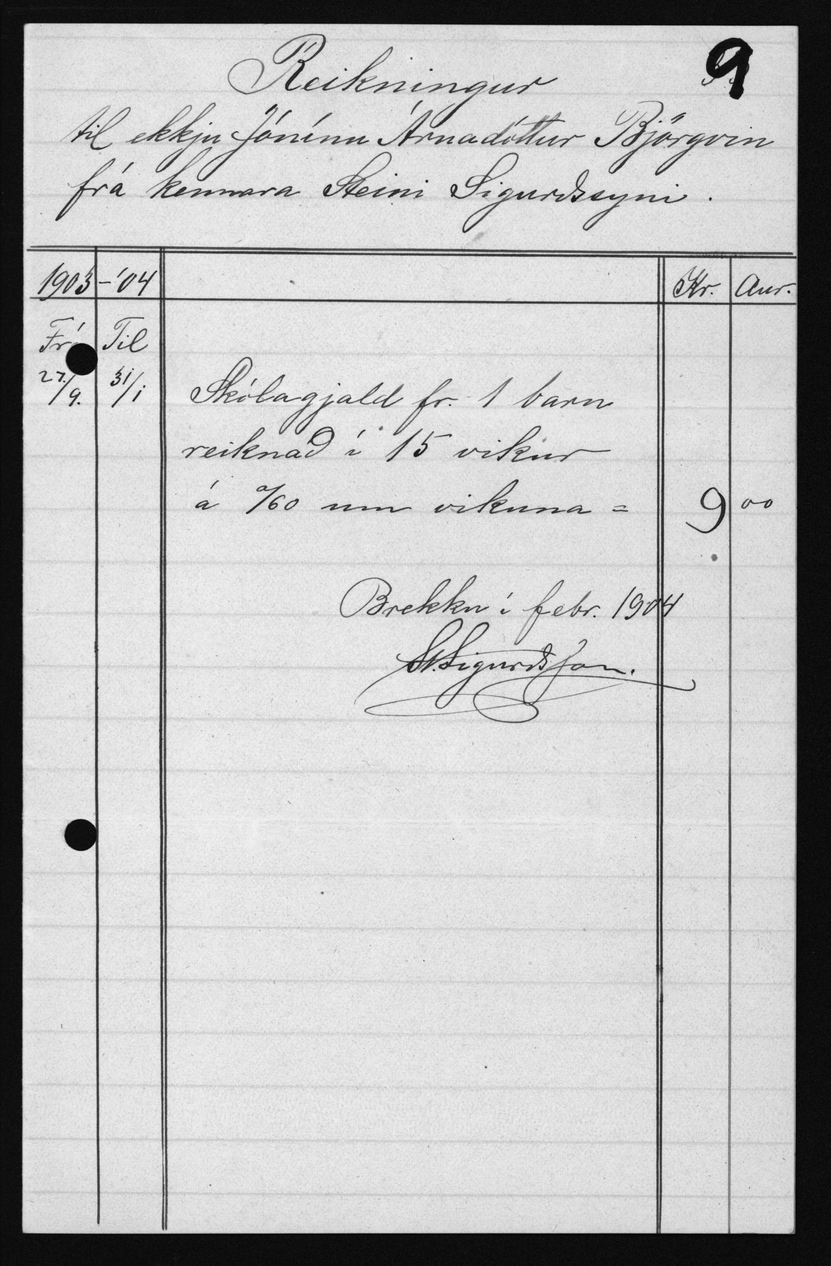 9
Reikningur
til ekkju Jónínu Árnadóttur Björgvin
frá kennara Steini Sigurðssyni.
1903 - '04 Kr. Aur.
Frá Til
27./9. 31/1 Skólagjald fr. 1 barn
reiknað í 15 vikur
á a/60 um vikuna = 9 00
Brekku í febr. 1904
St. Sigurðsson.